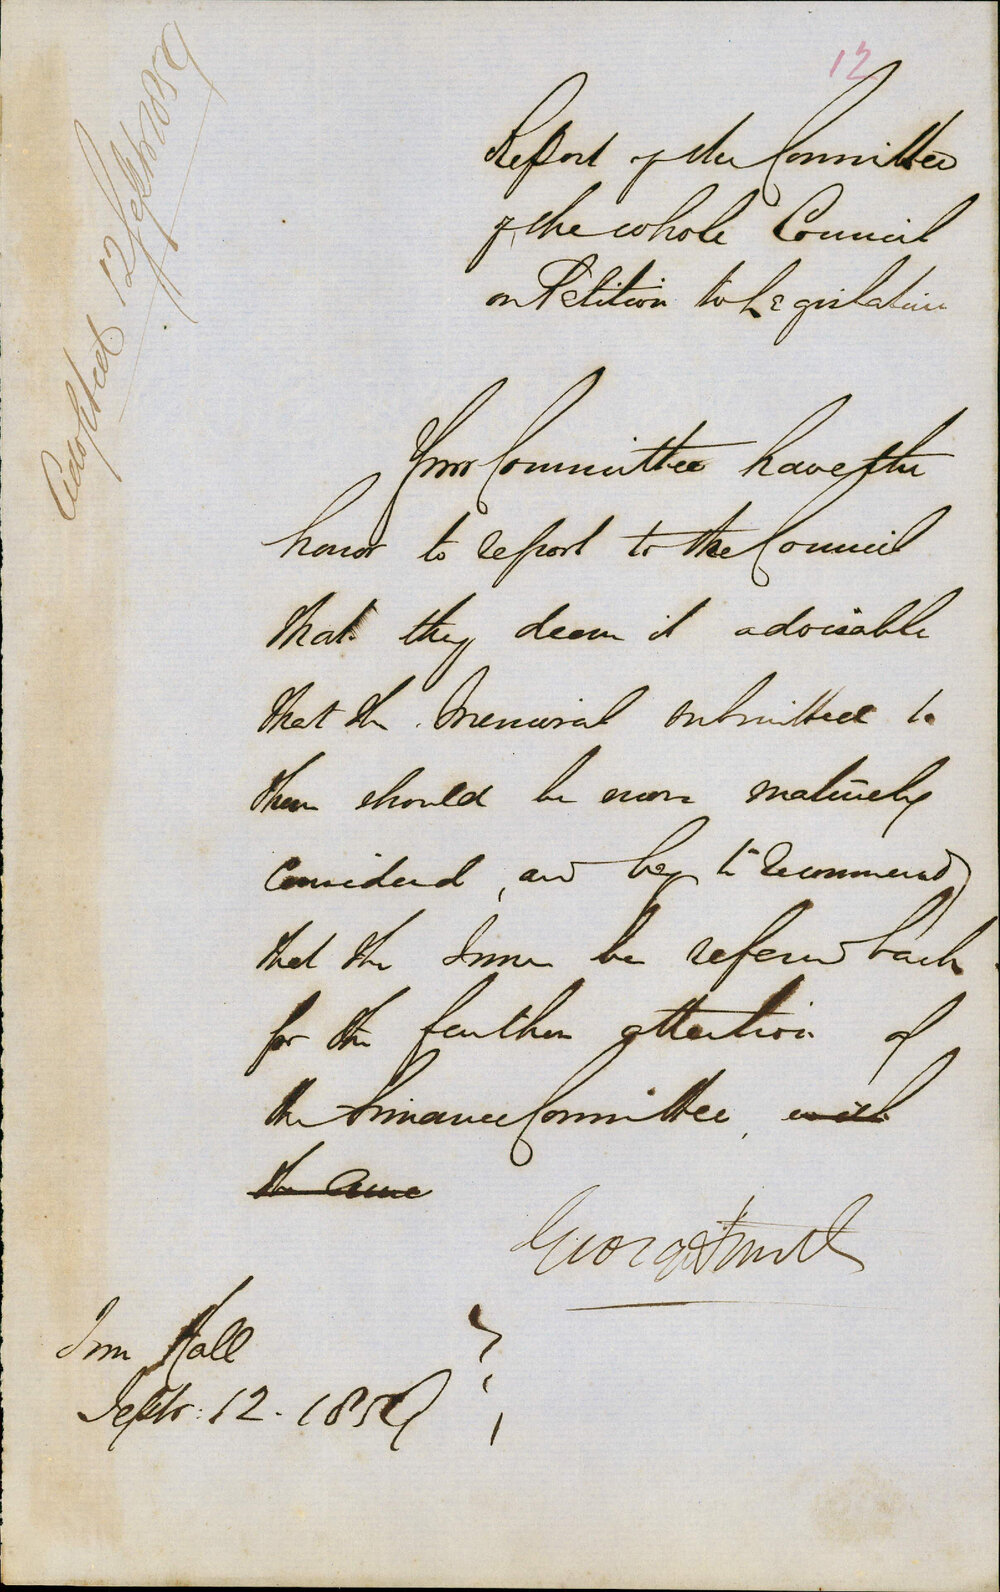 12
Adopted 12 Septr 1859
Report of the Committee
of the whole Council
on Petition to Legislature
Your Committee have the
honor to report to the Council
that they deem it advisable
that the Memorial submitted to
them should be more maturely
considered, and beg to recommend
that the same be referred back
for the further attention of
the Finance Committee, with
the same
George Smith
Town Hall
Septr: 12. 1859